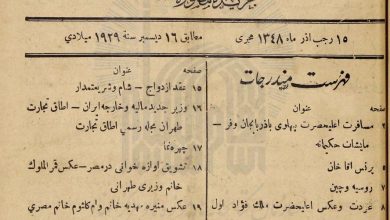 ۱۵ رجب آذر ماه ۱۳۴۸ هجری
مطابق ۱۶ دیسمبر سنة ۱۹۲۹ میلادی
فهرست مندرجات
صفحه عنوان
۲ مسافرت اعلیحضرت پهلوی باذربایجان وفر-
مایشات حکیمانه
پرنس اقا خان
روسیه وچین
عردت وعکس اعلیحضرت ملك فؤاد اول
صفحه عنوان
۱۵ عقد ازدواج - شام وشریعتمدار
۱۶ وزیر جدید مالیه وخارجه ایران - اطاق تجارت
طهران مجله رسمی اطاق تجارت
۱۷ چهره‌نما
۱۸ تشویق اوازه خوانی درمصر - عکس قمر الملوك
خانم وزیری طهرانی
۱۹ عکس منیره مهدیه خانم وام کلثوم خانم مصری